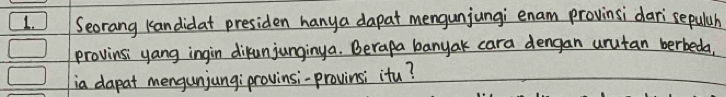 1. Seorang kandidat presiden hanya dapat mengunjungi enam provinsi dari sepuluh
provinsi yang ingin dikunjunginya. Berapa banyak cara dengan urutan berbeda,
ia dapat mengunjungi provinsi-provinsi itu?